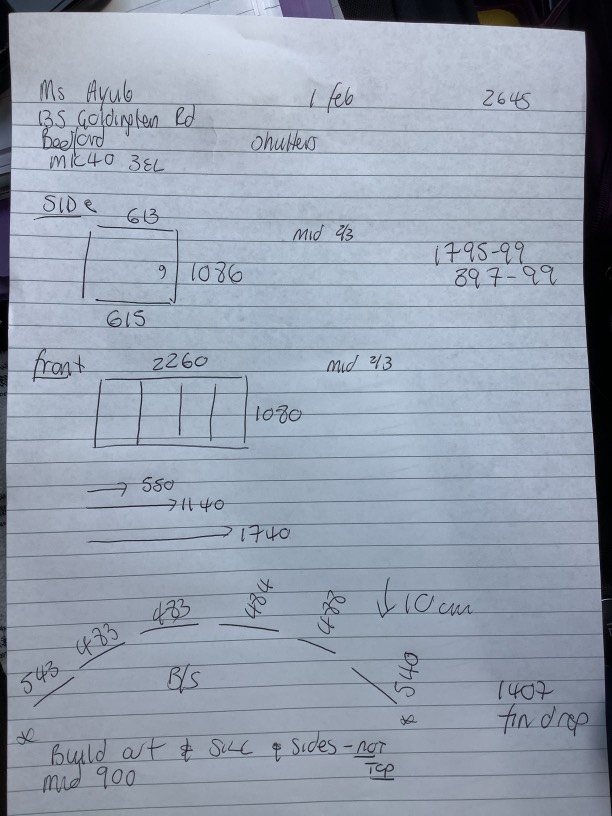 Ms Ayub 1 feb 2645
135 Goldington Rd
Bedford shutters
MK40 3EL
SIDe
613
mid 2/3
1795-99
9 1086
897-99
615
front 2260 mid 2/3
1080
550
1140
1740
543 483 483 484 488 540
↓10cm
B/S
1407
fin drop
* *
Build out & SILL & sides - not
TOP
mid 900